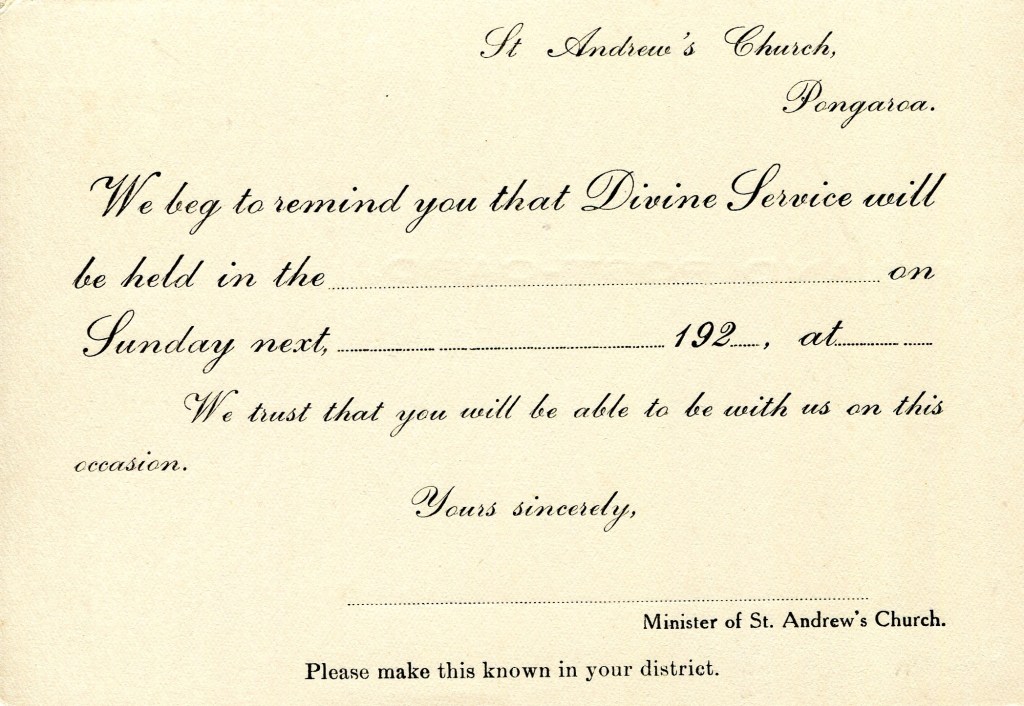 St Andrew's Church,
Pongaroa.
We beg to remind you that Divine Service will
be held in the .......... on
Sunday next, .......... 192...., at..........
We trust that you will be able to be with us on this
occasion.
Yours sincerely,
Minister of St. Andrew's Church.
Please make this known in your district.